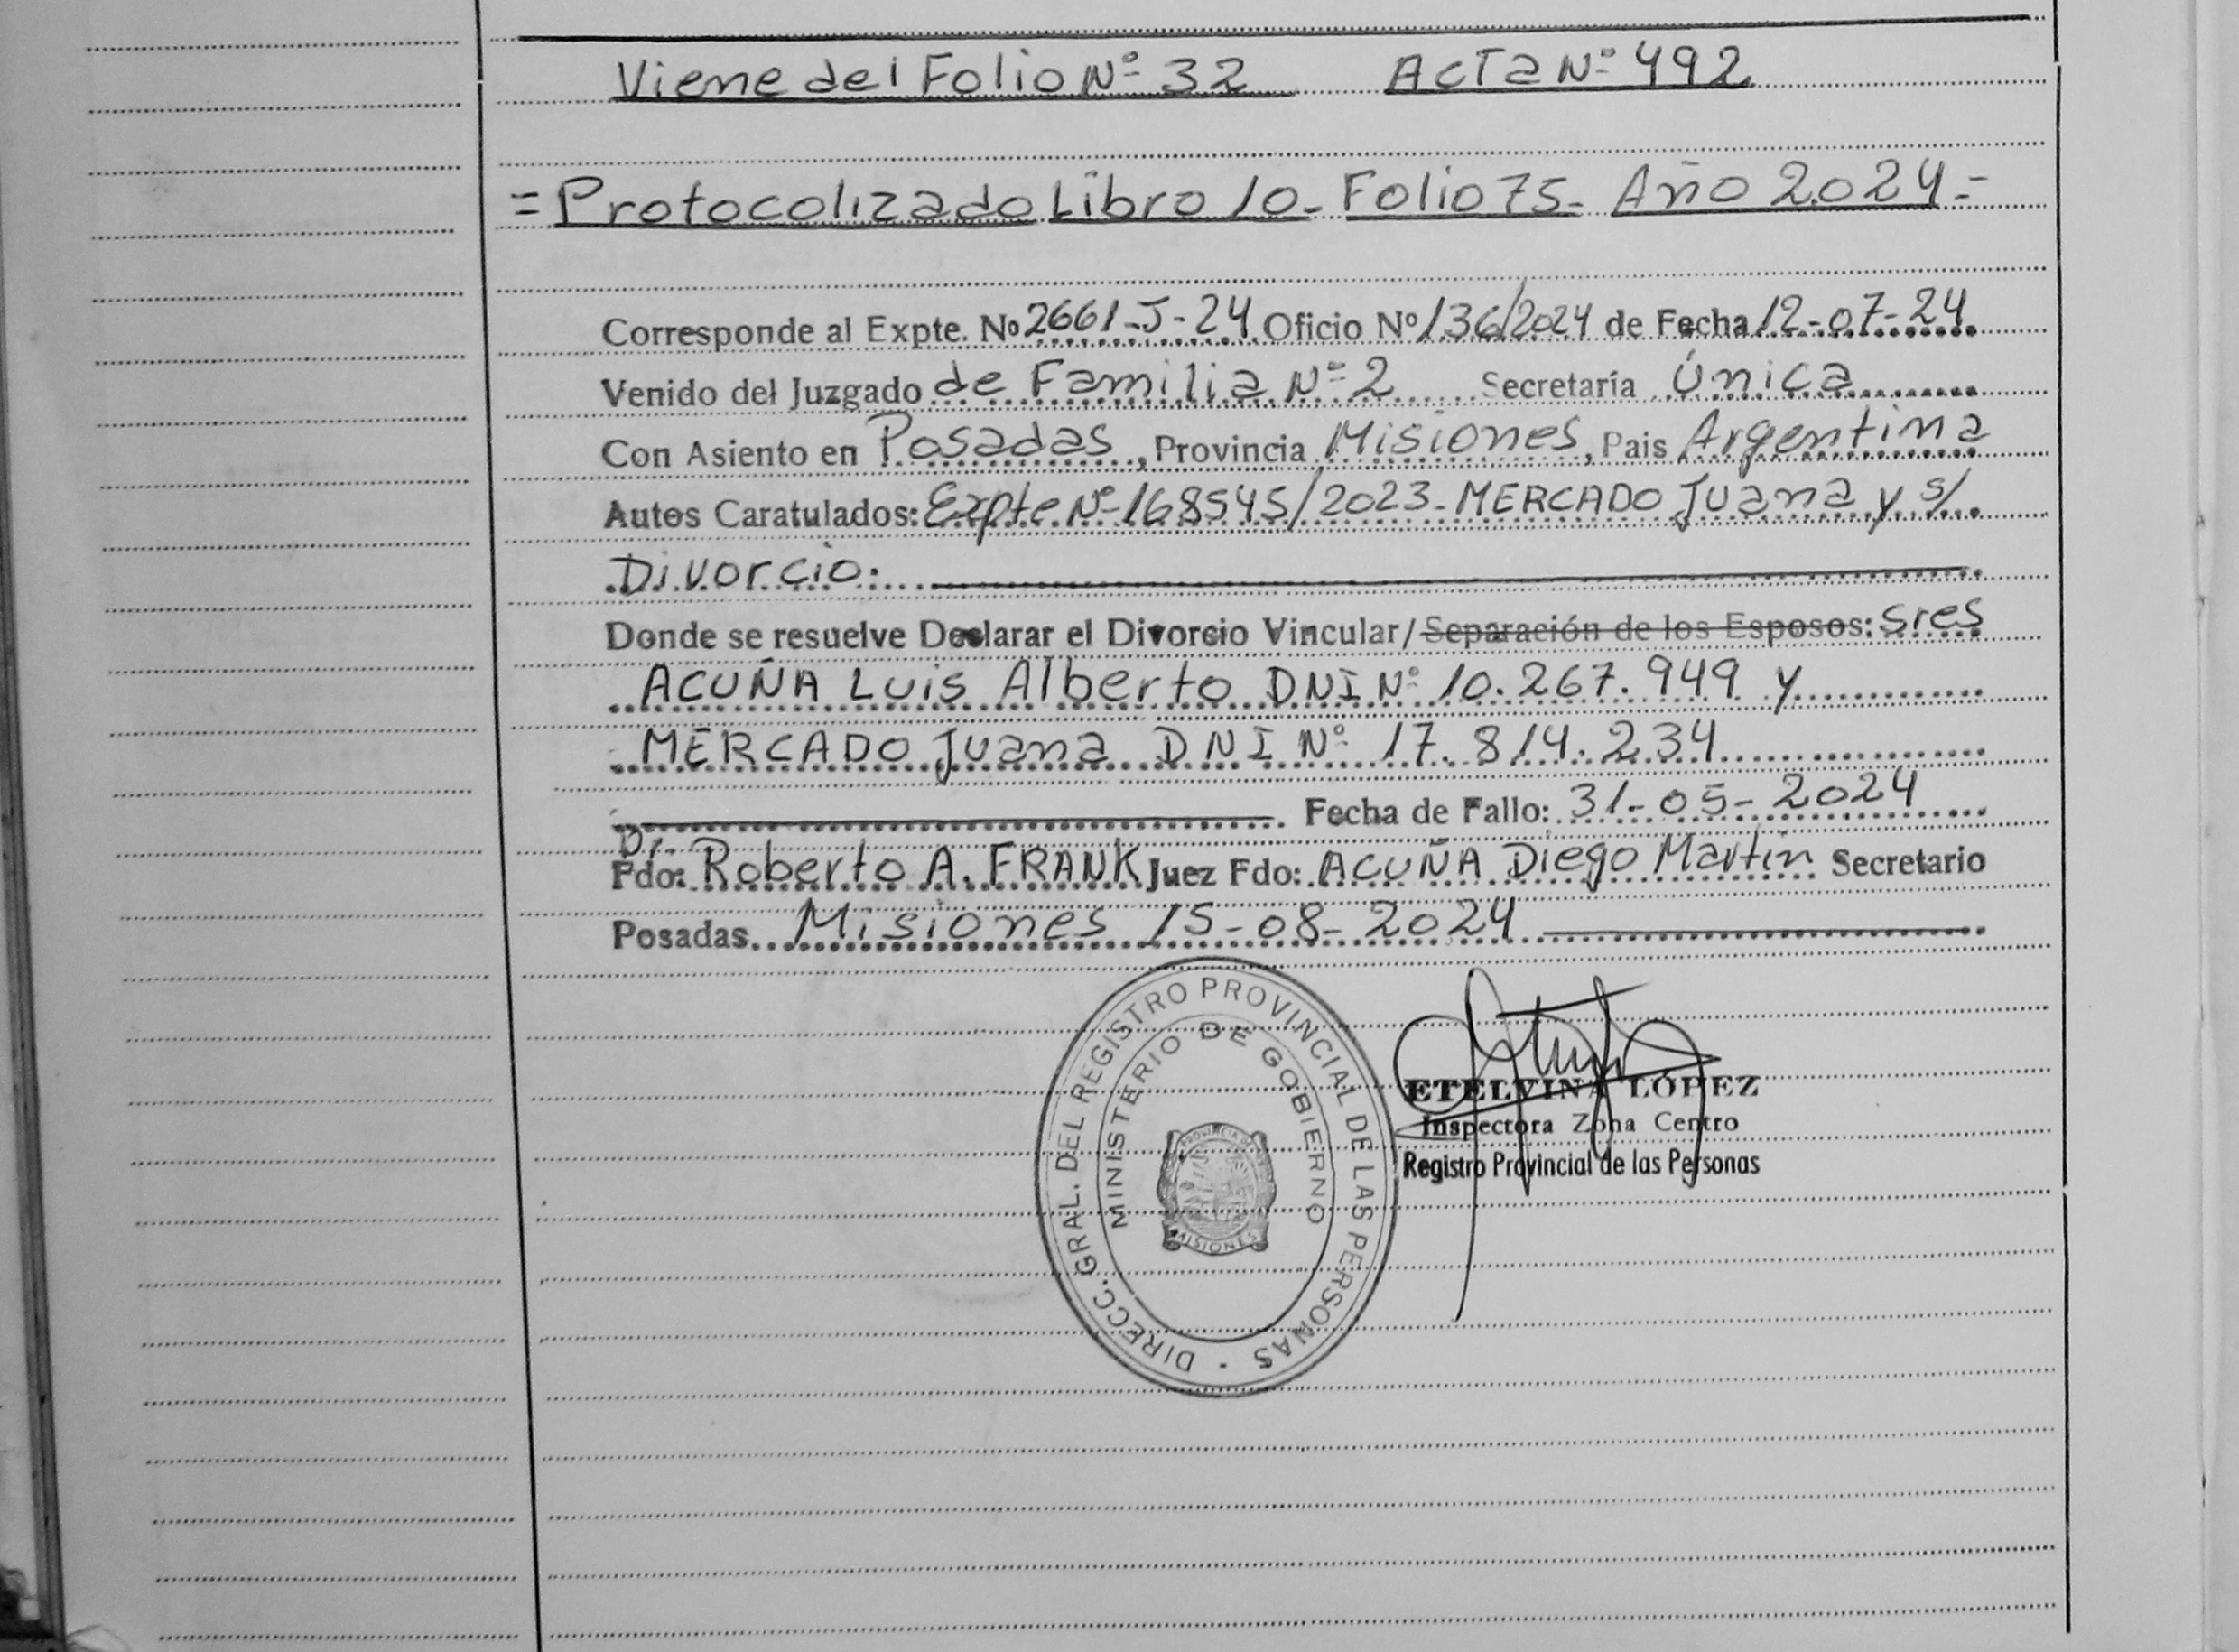 Viene del Folio Nº 32 Acta Nº 492
= Protocolizado Libro 10- Folio 75- Año 2024-=
Corresponde al Expte. Nº 2661-J-24 Oficio Nº 136/2024 de Fecha 12-07-24
Venido del Juzgado de Familia Nº 2 Secretaría Única
Con Asiento en Posadas, Provincia Misiones, Pais Argentina
Autos Caratulados: Expte Nº 168545/2023- MERCADO Juana y s/
Divorcio:
Donde se resuelve Declarar el Divorcio Vincular/Separación de los Esposos: Sres
ACUÑA Luis Alberto DNI Nº 10.267.949 y
MERCADO Juana DNI Nº 17.814.234
Fecha de Fallo: 31-05-2024
Dr.
Fdo: Roberto A. FRANK Juez Fdo: ACUÑA Diego Martín Secretario
Posadas Misiones 15-08-2024
DIRECC. GRAL. DEL REGISTRO PROVINCIAL DE LAS PERSONAS
MINISTERIO DE GOBIERNO
PROVINCIA DE
MISIONES
ETELVINA LÓPEZ
Inspectora Zona Centro
Registro Provincial de las Personas